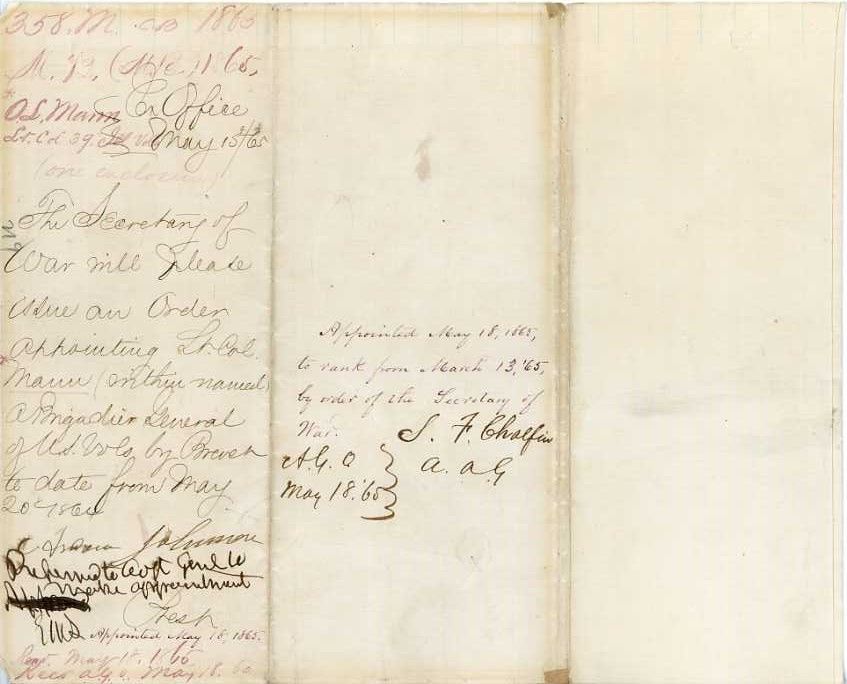 358. M. 1865
M. B. 1865,
O. L. Mann Ex Office
Lt. Col 39. Ill Vol May 15/65
(one enclosure)
The Secretary of
War will please
issue an Order
appointing Lt. Col.
Mann (within named)
a Brigadier General
of U.S. Vols, by Brevet
to date from May
20th 1864
Andrew Johnson
Referred to Adjt Genl to
make appointment
Prest
EMS
Appointed May 18, 1865.
Recd. May 18. 1865
Recd A.G.O. May 18. 65
Appointed May 18, 1865,
to rank from March 13, '65,
by order of the Secretary of
War.
S. F. Chalfin
A. G. O A. A G
May 18. '65